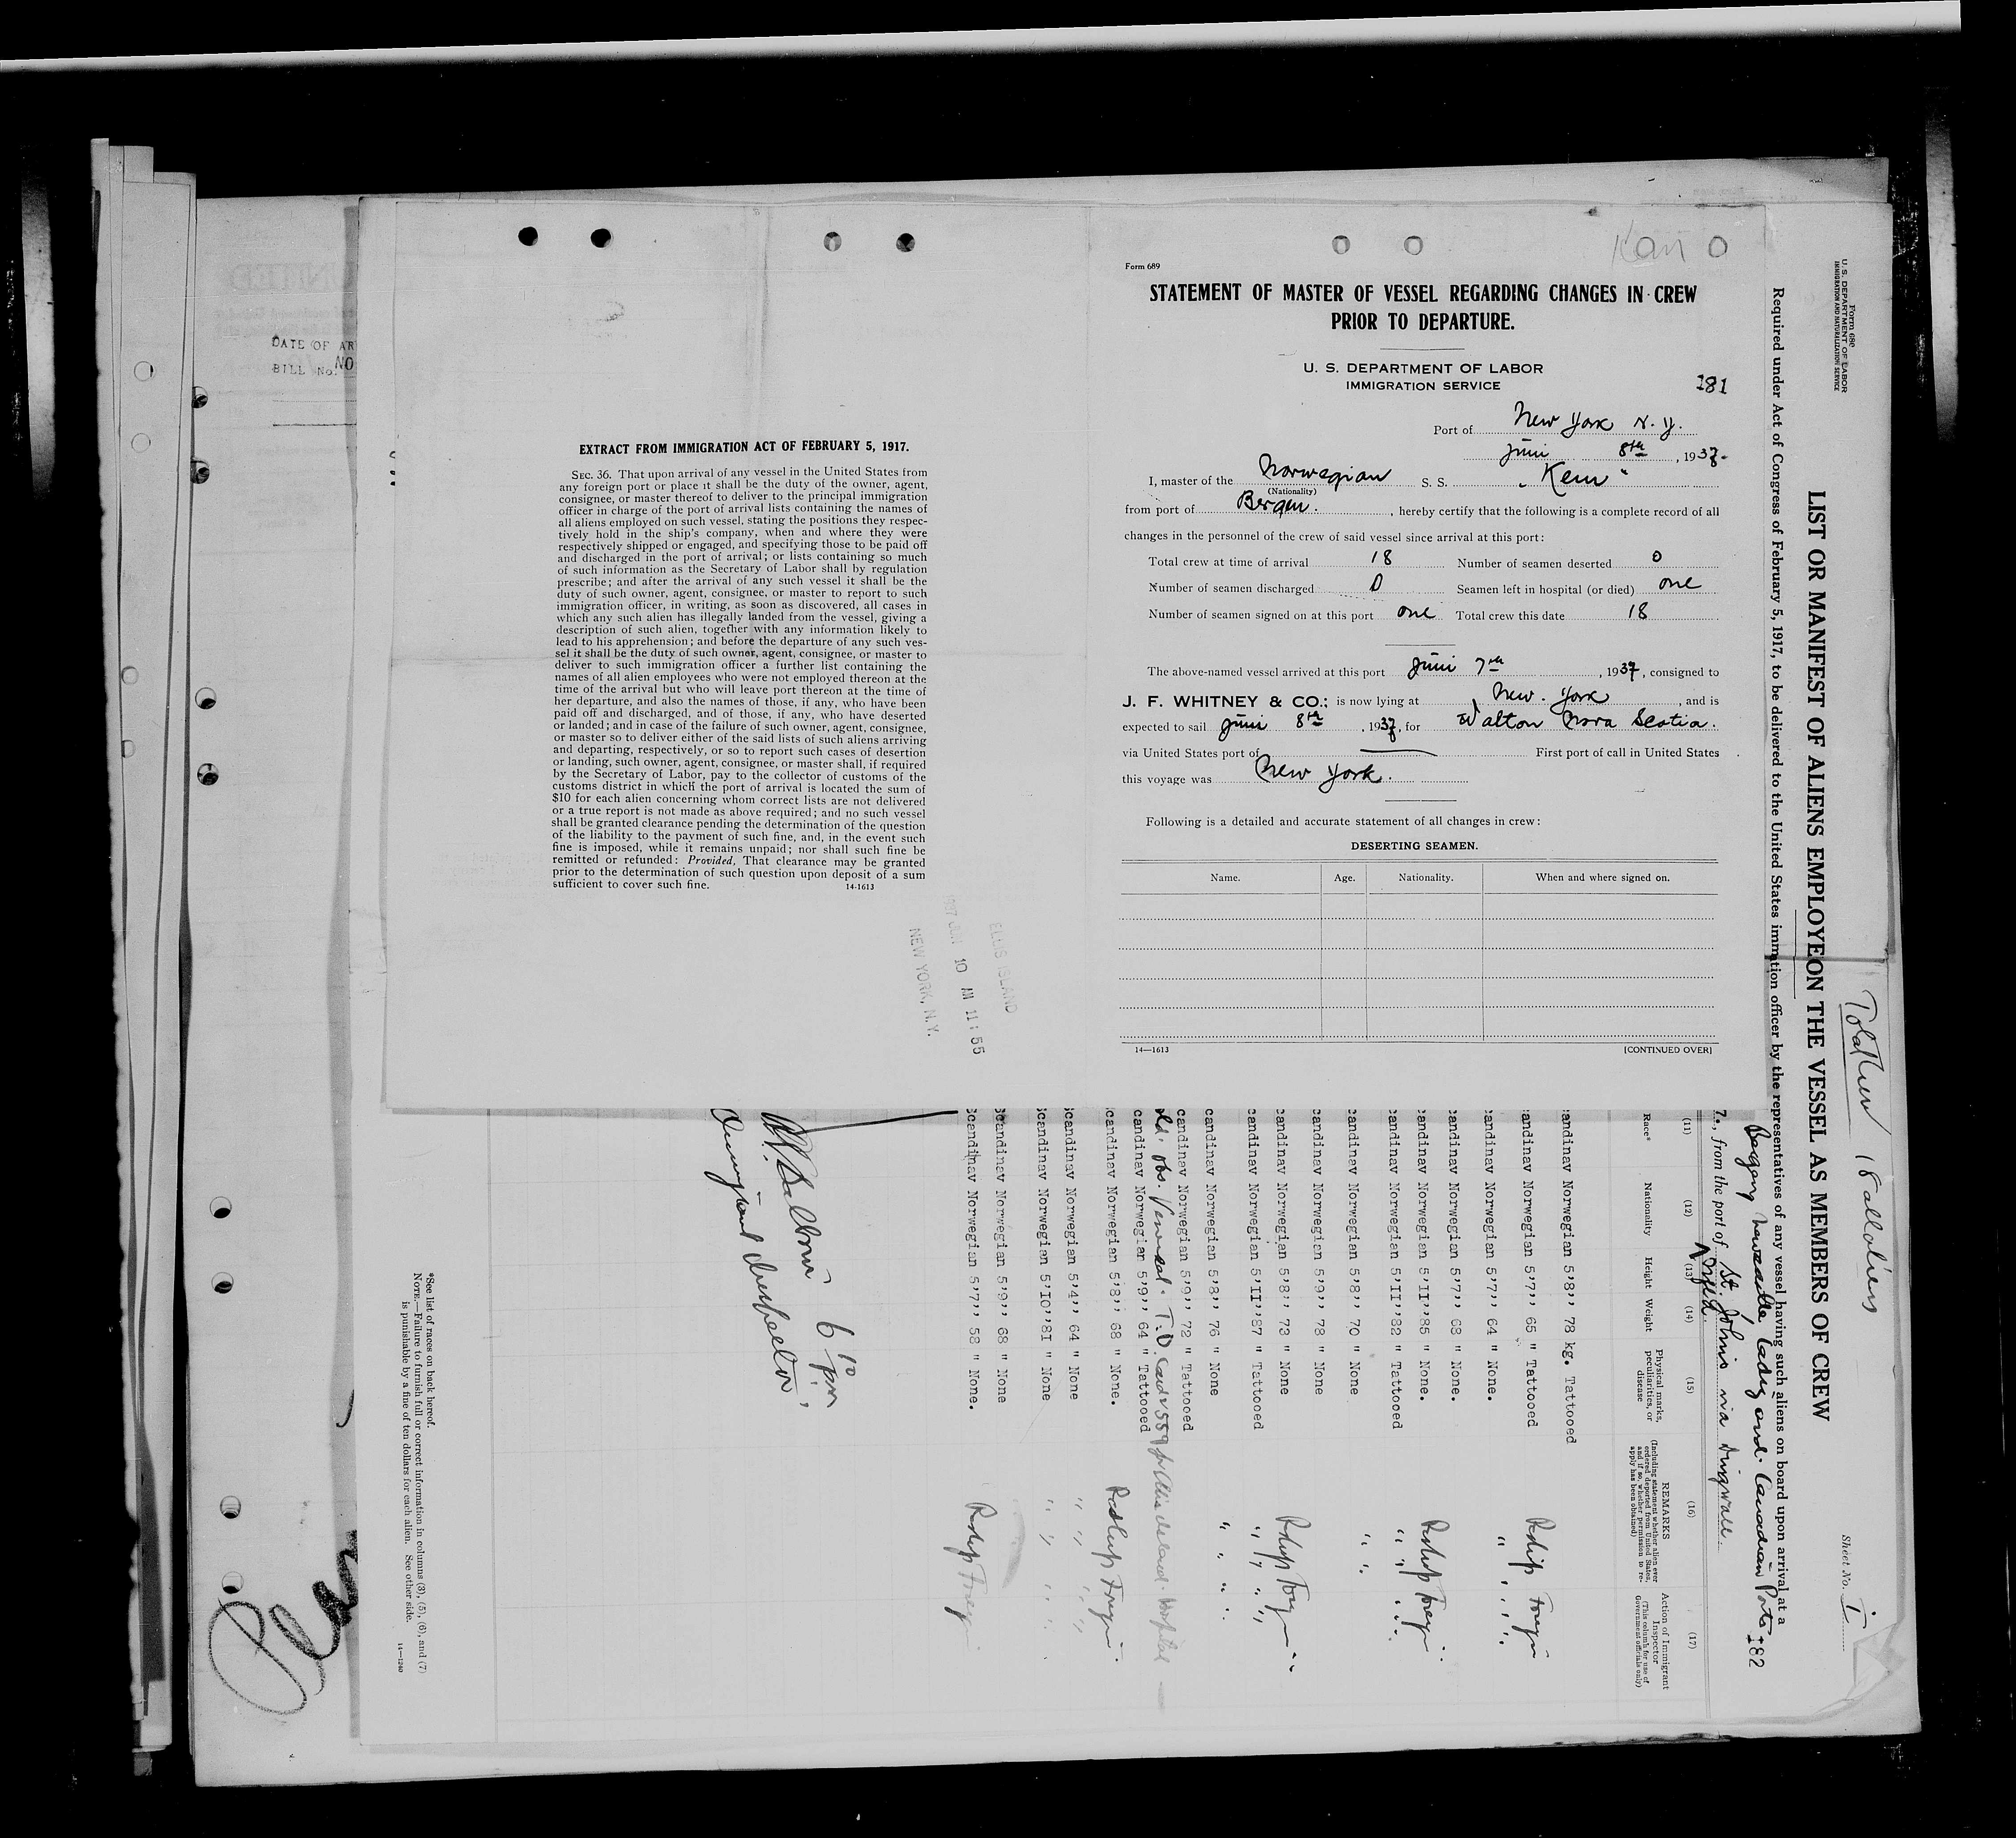 Kari
Form 689
STATEMENT OF MASTER OF VESSEL REGARDING CHANGES IN CREW
PRIOR TO DEPARTURE.
U. S. DEPARTMENT OF LABOR
IMMIGRATION SERVICE
181
Port of New York N. Y.
Juni 8th, 1937.
I, master of the Norwegian S. S. "
(Nationality)
from port of Bergen., hereby certify that the following is a complete record of all
changes in the personnel of the crew of said vessel since arrival at this port:
Total crew at time of arrival 18 Number of seamen deserted 0
Number of seamen discharged 0 Seamen left in hospital (or died) one
Number of seamen signed on at this port one Total crew this date 18
The above-named vessel arrived at this port Juni 7th, 1937, consigned to
J. F. WHITNEY & CO.; is now lying at New York, and is
expected to sail Juni 8th, 1937, for Walton Nova Scotia.
via United States port of First port of call in United States
this voyage was New York.
Following is a detailed and accurate statement of all changes in crew:
DESERTING SEAMEN.
Name. Age. Nationality. When and where signed on.
14—1613 [CONTINUED OVER]
EXTRACT FROM IMMIGRATION ACT OF FEBRUARY 5, 1917.
SEC. 36. That upon arrival of any vessel in the United States from
any foreign port or place it shall be the duty of the owner, agent,
consignee, or master thereof to deliver to the principal immigration
officer in charge of the port of arrival lists containing the names of
all aliens employed on such vessel, stating the positions they respec-
tively hold in the ship's company, when and where they were
respectively shipped or engaged, and specifying those to be paid off
and discharged in the port of arrival; or lists containing so much
of such information as the Secretary of Labor shall by regulation
prescribe; and after the arrival of any such vessel it shall be the
duty of such owner, agent, consignee, or master to report to such
immigration officer, in writing, as soon as discovered, all cases in
which any such alien has illegally landed from the vessel, giving a
description of such alien, together with any information likely to
lead to his apprehension; and before the departure of any such ves-
sel it shall be the duty of such owner, agent, consignee, or master to
deliver to such immigration officer a further list containing the
names of all alien employees who were not employed thereon at the
time of the arrival but who will leave port thereon at the time of
her departure, and also the names of those, if any, who have been
paid off and discharged, and of those, if any, who have deserted
or landed; and in case of the failure of such owner, agent, consignee,
or master so to deliver either of the said lists of such aliens arriving
and departing, respectively, or so to report such cases of desertion
or landing, such owner, agent, consignee, or master shall, if required
by the Secretary of Labor, pay to the collector of customs of the
customs district in which the port of arrival is located the sum of
$10 for each alien concerning whom correct lists are not delivered
or a true report is not made as above required; and no such vessel
shall be granted clearance pending the determination of the question
of the liability to the payment of such fine, and, in the event such
fine is imposed, while it remains unpaid; nor shall such fine be
remitted or refunded: Provided, That clearance may be granted
prior to the determination of such question upon deposit of a sum
sufficient to cover such fine. 14-1613
ELLIS ISLAND
1937 JUN 10 AM 11:55
NEW YORK, N.Y.
DATE OF AR
BILL No. NO
Form 680
U. S. DEPARTMENT OF LABOR
IMMIGRATION AND NATURALIZATION SERVICE
Total Crew 18 all aliens
Sheet No. 1
LIST OR MANIFEST OF ALIENS EMPLOYE ON THE VESSEL AS MEMBERS OF CREW
Required under Act of Congress of February 5, 1917, to be delivered to the United States immi tion officer by the representatives of any vessel having such aliens on board upon arrival at a
and Canadian Ports 182
7., from the port of St. Johns via Dingwall
Nfld.
(11) (12) (13) (14) (15) (16) (17)
Race* Nationality Height Weight Physical marks, peculiarities, or disease
REMARKS
(Including statement whether alien ever ordered deported from United States, and if so, whether permission to re-apply has been obtained)
Action of Immigrant Inspector
(This column for use of Government officials only)
andinav Norwegian 5'8'' 78 kg. Tattooed
andinav Norwegian 5'7'' 65 " Tattooed Reship Foreign
andinav Norwegian 5'7'' 64 " None. " " " "
andinav Norwegian 5'7'' 68 " None.
andinav Norwegian 5'II''85 " None. Reship Foreign
candinav Norwegian 5'II''82 " Tattooed " " " "
candinav Norwegian 5'8'' 70 " None " "
candinav Norwegian 5'9'' 78 " None
candinav Norwegian 5'8'' 73 " None Reship Foreign
candinav Norwegian 5'II''87 " Tattooed " " " "
candinav Norwegian 5'8'' 76 " None " " " "
candinav Norwegian 5'9'' 72 " Tattooed
Venereal. T.D. Card v 559 for Ellis Island Hospital
candinav Norwegian 5'9'' 64 " Tattooed
candinav Norwegian 5'8'' 68 " None. Reship Foreign
candinav Norwegian 5'4'' 64 " None " " " "
candinav Norwegian 5'IO''8I " None " " " "
candinav Norwegian 5'9'' 68 " None
Scandinav Norwegian 5'7'' 58 " None. Reship Foreign
6 10 pm
Immigrant Inspector
*See list of races on back hereof.
NOTE.—Failure to furnish full or correct information in columns (3), (5), (6), and (7)
is punishable by a fine of ten dollars for each alien. See other side.
14—1240